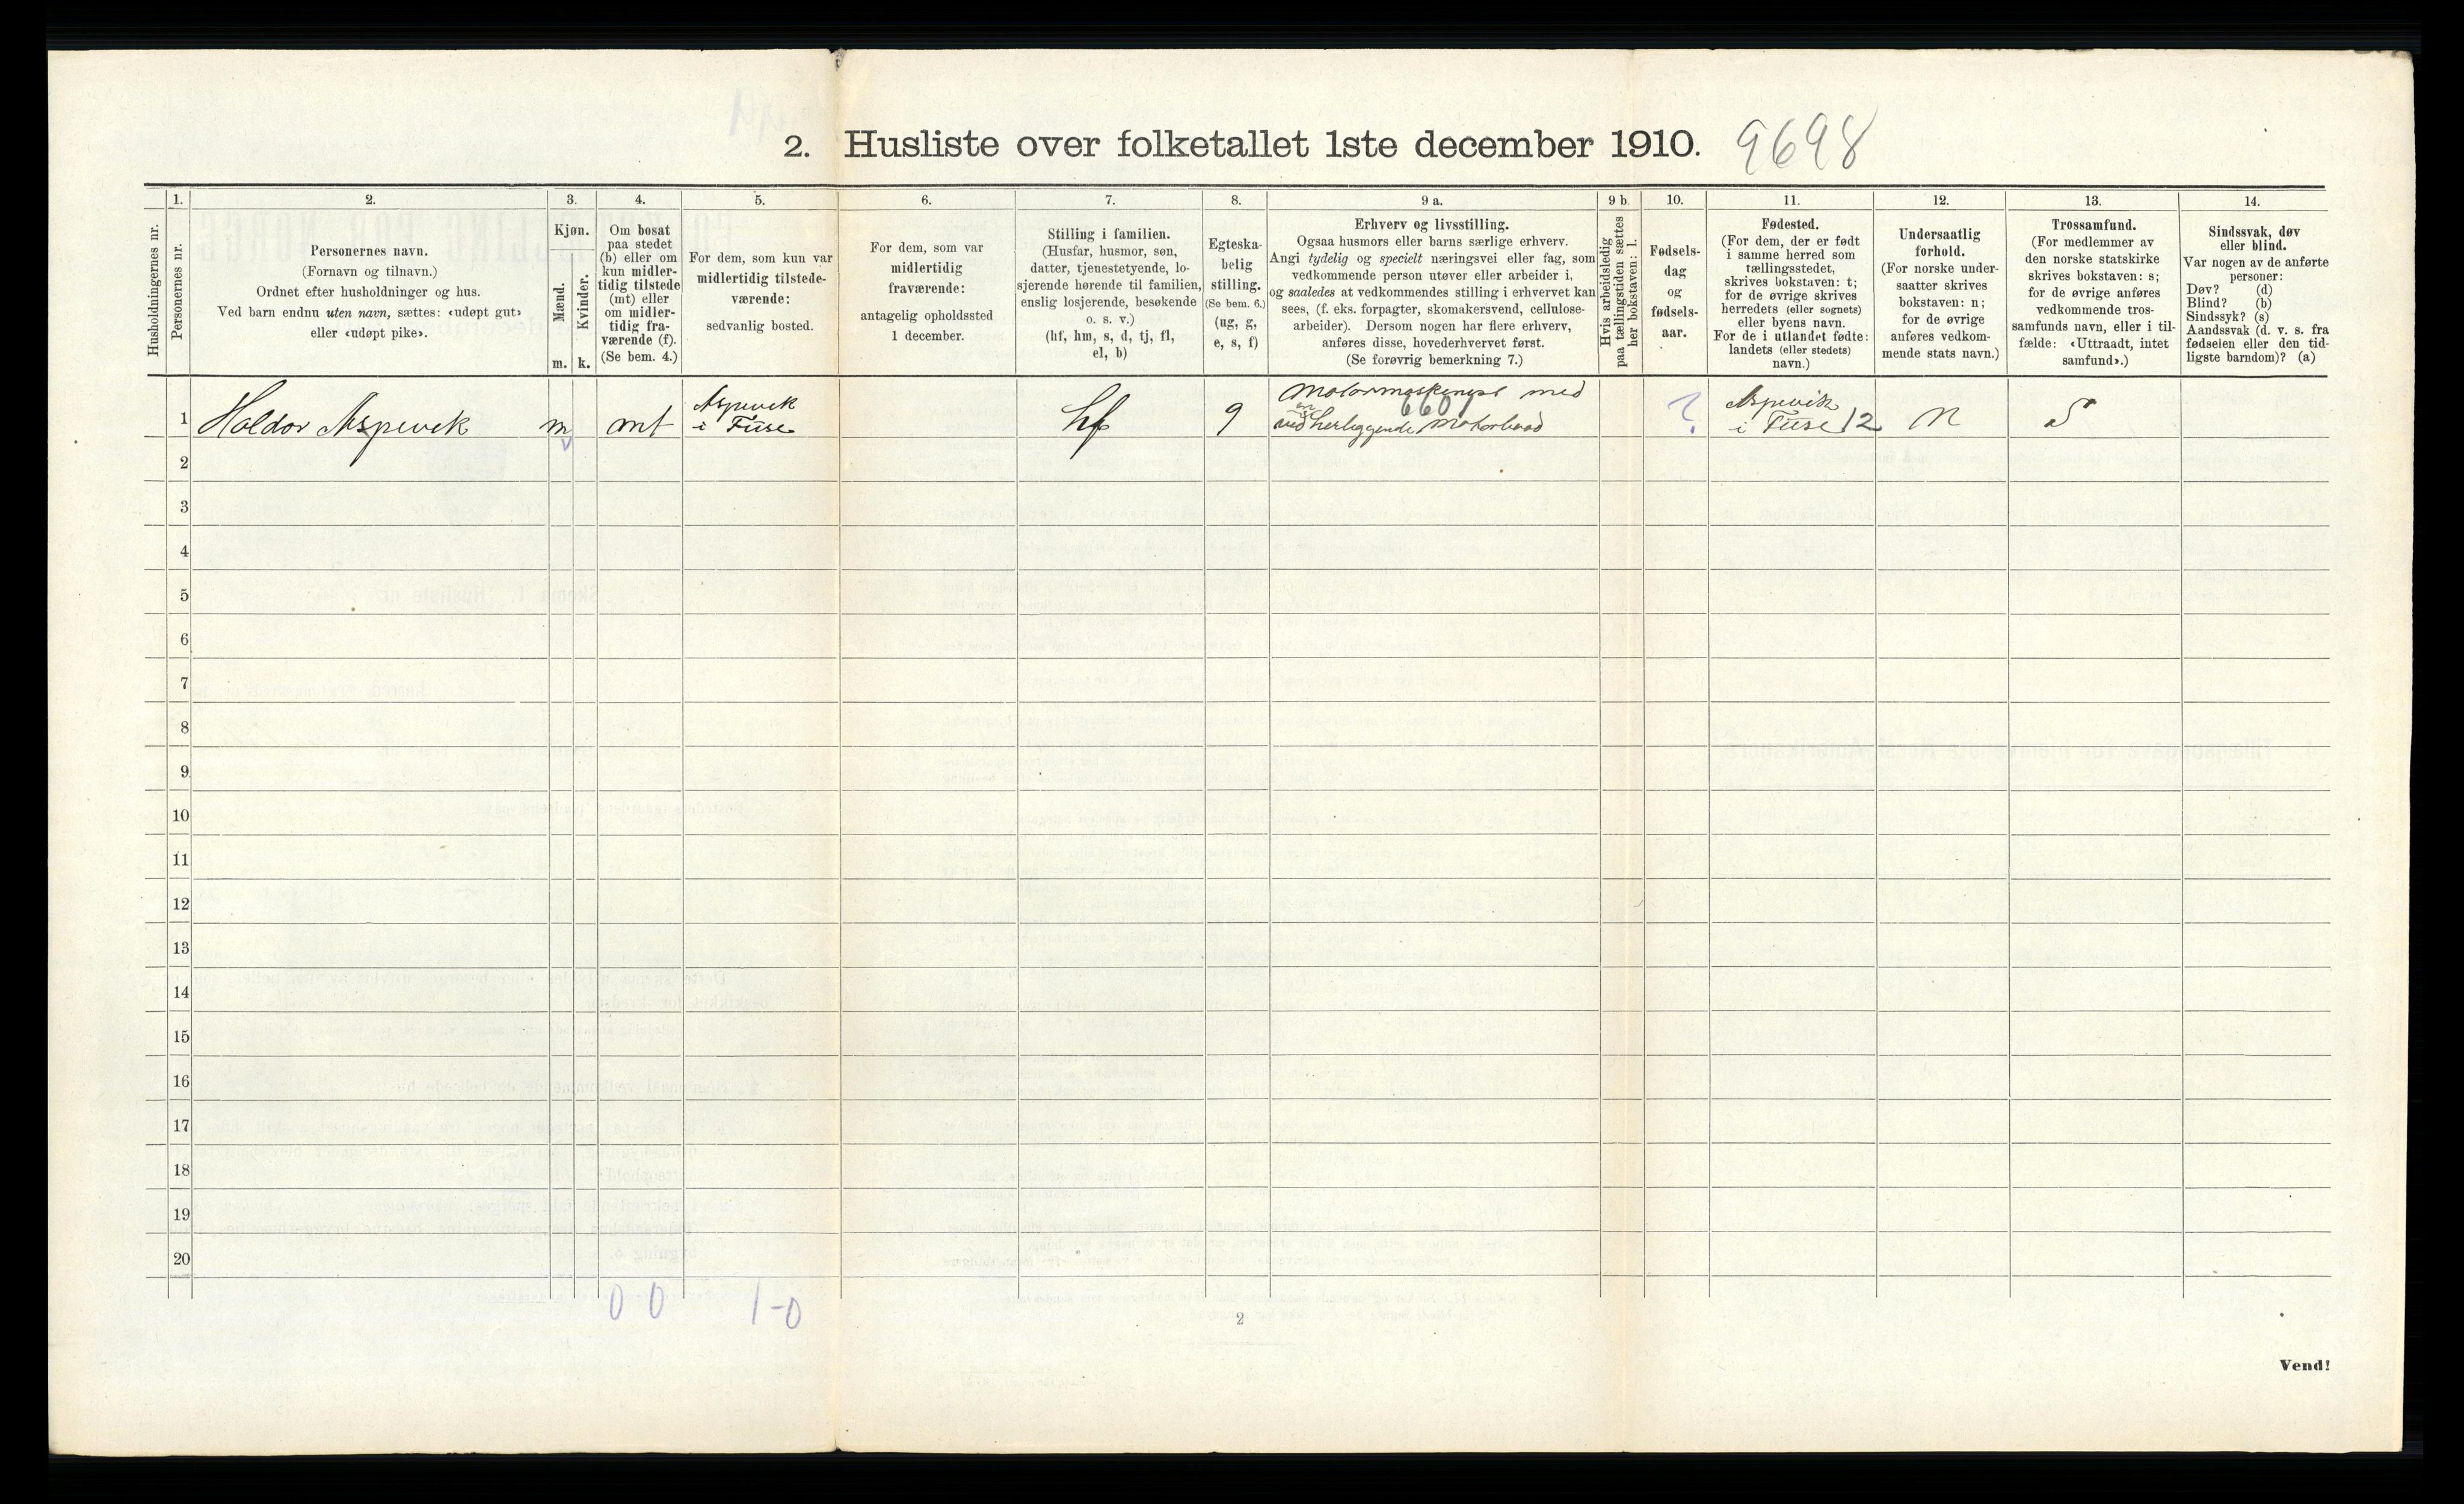 2. Husliste over folketallet 1ste december 1910. 9698
Husholdningernes nr.
1.
Personernes nr.
2.
Personernes navn.
(Fornavn og tilnavn.)
Ordnet efter husholdninger og hus.
Ved barn endnu uten navn, sættes: «udøpt gut»
eller «udøpt pike».
3.
Kjøn.
Mænd.
Kvinder.
m. k.
4.
Om bosat
paa stedet
(b) eller om
kun midler-
tidig tilstede
(mt) eller
om midler-
tidig fra-
værende (f).
(Se bem. 4.)
5.
For dem, som kun var
midlertidig tilstede-
værende:
sedvanlig bosted.
6.
For dem, som var
midlertidig
fraværende:
antagelig opholdssted
1 december.
7.
Stilling i familien.
(Husfar, husmor, søn,
datter, tjenestetyende, lo-
sjerende hørende til familien,
enslig losjerende, besøkende
o. s. v.)
(hf, hm, s, d, tj, fl,
el, b)
8.
Egteska-
belig
stilling.
(Se bem. 6.)
(ug, g,
e, s, f)
9 a.
Erhverv og livsstilling.
Ogsaa husmors eller barns særlige erhverv.
Angi tydelig og specielt næringsvei eller fag, som
vedkommende person utøver eller arbeider i,
og saaledes at vedkommendes stilling i erhvervet kan
sees, (f. eks. forpagter, skomakersvend, cellulose-
arbeider). Dersom nogen har flere erhverv,
anføres disse, hovederhvervet først.
(Se forøvrig bemerkning 7.)
9 b.
Hvis arbeidsledig
paa tællingstiden sættes
her bokstaven: l.
10.
Fødsels-
dag
og
fødsels-
aar.
11.
Fødested.
(For dem, der er født
i samme herred som
tællingsstedet,
skrives bokstaven: t;
for de øvrige skrives
herredets (eller sognets)
eller byens navn.
For de i utlandet fødte:
landets (eller stedets)
navn.)
12.
Undersaatlig
forhold.
(For norske under-
saatter skrives
bokstaven: n;
for de øvrige
anføres vedkom-
mende stats navn.)
13.
Trossamfund.
(For medlemmer av
den norske statskirke
skrives bokstaven: s;
for de øvrige anføres
vedkommende tros-
samfunds navn, eller i til-
fælde: «Uttraadt, intet
samfund».)
14.
Sindssvak, døv
eller blind.
Var nogen av de anførte
personer:
Døv? (d)
Blind? (b)
Sindssyk? (s)
Aandssvak (d. v. s. fra
fødselen eller den tid-
ligste barndom)? (a)
1
Haldor Aspevik
m
mt
Aspevik
i Fuse
hf
g
Motormaskinist med
en
6607
herliggende Motorbaad
?
Aspevik
i Fuse 12
n
S
2
3
4
5
6
7
8
9
10
11
12
13
14
15
16
17
18
19
20
0 0 1-0
2
Vend!